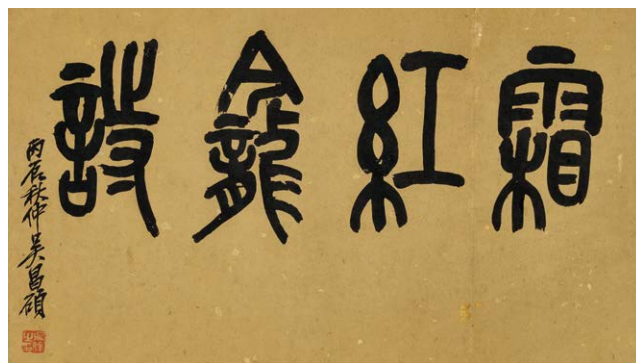 霜紅龕詩
丙辰秋仲吳昌碩